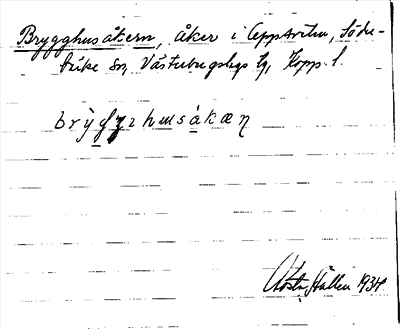 Brygghusåkern, åker i Uppsveten, Söder-
bärke sn, Västerbergslags tg, Kopp. l.
brỳg̀gzhusákæn
Gösta Hallen 1934.